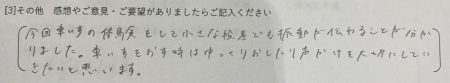 [3]その他 感想やご意見・ご要望がありましたらご記入ください
今回車いすの体験をして小さな段差でも振動が伝わることが分か
りました。車いすをおす時はゆっくりおしたり声がけを大切にしてい
きたいと思います。